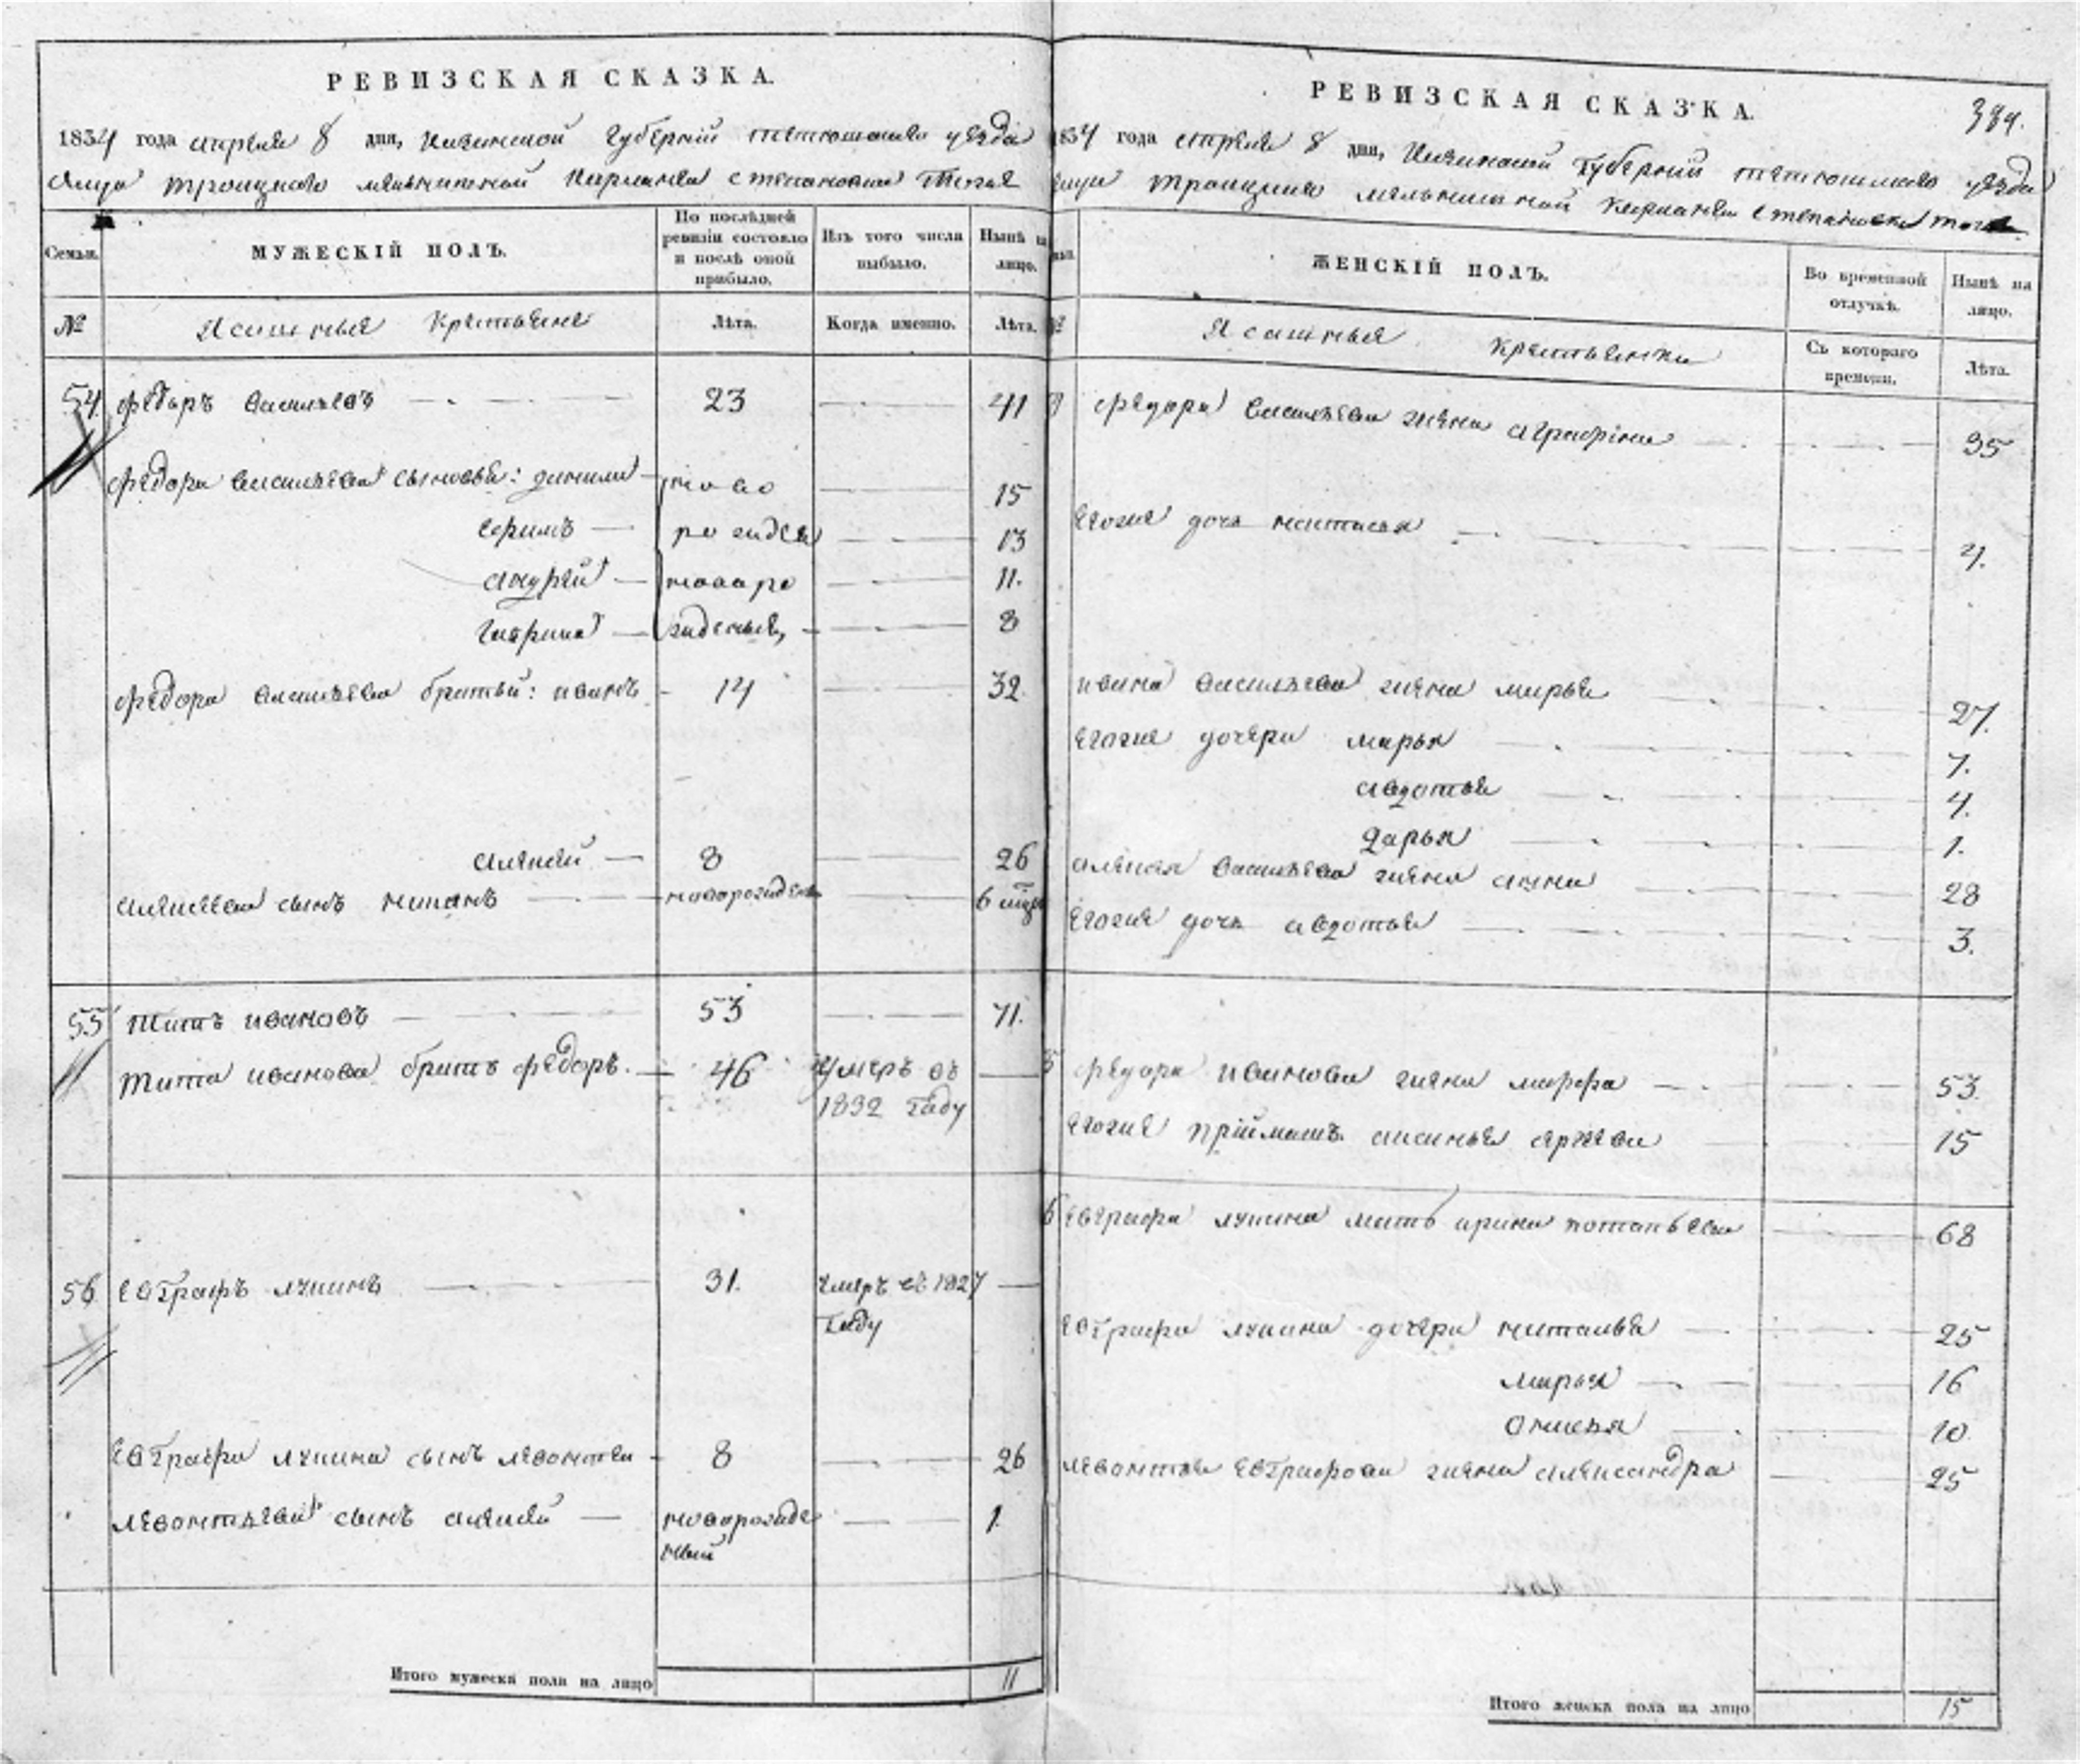 РЕВИЗСКАЯ СКАЗКА.
1834 года апреля 8 дня, Казанской губернии тетюшскаго уезда
Села троицкаго
Семьи.
МУЖЕСКІЙ ПОЛЪ.
По послѣдней ревизіи состояло и послѣ оной прибыло.
Изъ того числа выбыло.
Нынѣ на лицо.
№
Ясашныя Крестьяне
Лѣта.
Когда именно.
Лѣта.
54 федоръ васильевъ 23 41
федора васильева сыновья: данила ново 15
ефимъ рожден 13
андрей новоро 11.
гаврила жденыя, 8
федора васильева братьи: иванъ 14 32
алексей 8 26
алексеева сынъ новорожден 6
55 титъ ивановъ 53 71.
тита иванова братъ федоръ. 46 умеръ въ
1832 году
56 евграфъ лупинъ 31. умеръ въ 1827
году
евграфа лупина сынъ левонтеи 8 26
левонтьева сынъ алексей новорожде 1.
ный
Итого мужеска пола на лицо 11
РЕВИЗСКАЯ СКАЗКА.
384.
1834 года апреля 8 дня, Казанской губерніи тетюшскаго уезда
троицкаго
ЖЕНСКІЙ ПОЛЪ.
Во временной отлучкѣ.
Нынѣ на лицо.
№
Ясашныя Крестьянки
Съ котораго времени.
Лѣта.
федора васильева жена аграфіна 35
егоже дочь наталья 4.
ивана васильева жена марья 27.
егоже дочери марья 7.
авдотья 4.
дарья 1.
алексея васильева жена анна 28
егоже дочь авдотья 3.
5 федора иванова жена марфа 53.
егоже пріймашъ 15
6 евграфа лупина мать арина потапьева 68
евграфа лупина дочери наталья 25
марья 16
10.
левонтья евграфова жена александра 25
Итого женска пола на лицо 15